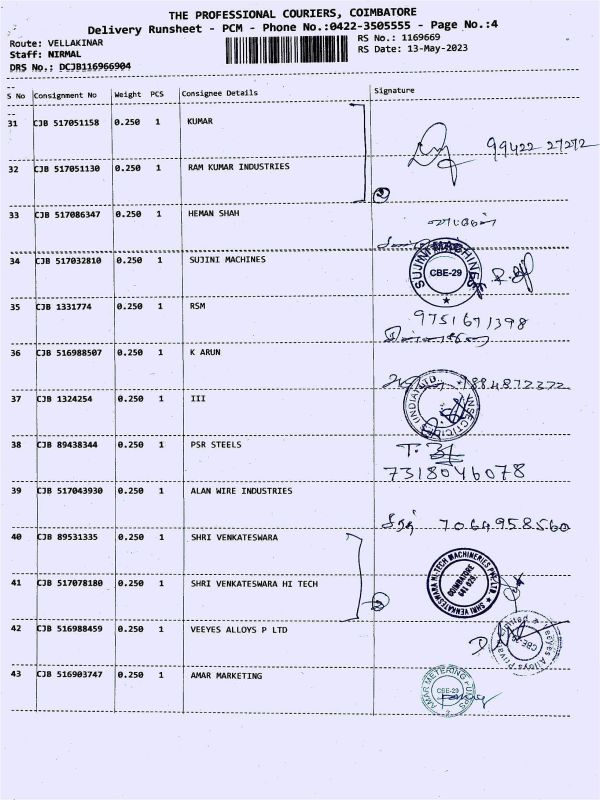 THE PROFESSIONAL COURIERS, COIMBATORE
Delivery Runsheet - PCM - Phone No.:0422-3505555 - Page No.:4
Route: VELLAKINAR
RS No.: 1169669
Staff: NIRMAL
RS Date: 13-May-2023
DRS No.: DCJB116966904
S No Consignment No Weight PCS Consignee Details Signature
31 CJB 517051158 0.250 1 KUMAR
99422 27272
32 CJB 517051130 0.250 1 RAM KUMAR INDUSTRIES
33 CJB 517086347 0.250 1 HEMAN SHAH
34 CJB 517032810 0.250 1 SUJINI MACHINES
SUJINI MACHINES
CBE-29
35 CJB 1331774 0.250 1 RSM
9751671398
36 CJB 516988507 0.250 1 K ARUN
37 CJB 1324254 0.250 1 III
INSECTICIDES (INDIA) LTD.
38 CJB 89438344 0.250 1 PSR STEELS
7318046078
39 CJB 517043930 0.250 1 ALAN WIRE INDUSTRIES
7064958560
40 CJB 89531335 0.250 1 SHRI VENKATESWARA
41 CJB 517078180 0.250 1 SHRI VENKATESWARA HI TECH
SHRI VENKATESWARA HI TECH MACHINERIES PVT. LTD.
COIMBATORE
641 029.
42 CJB 516988459 0.250 1 VEEYES ALLOYS P LTD
Veeyes Alloys Private Limited
CBE-29
43 CJB 516903747 0.250 1 AMAR MARKETING
AMAR METERING PUMPS
CBE-29